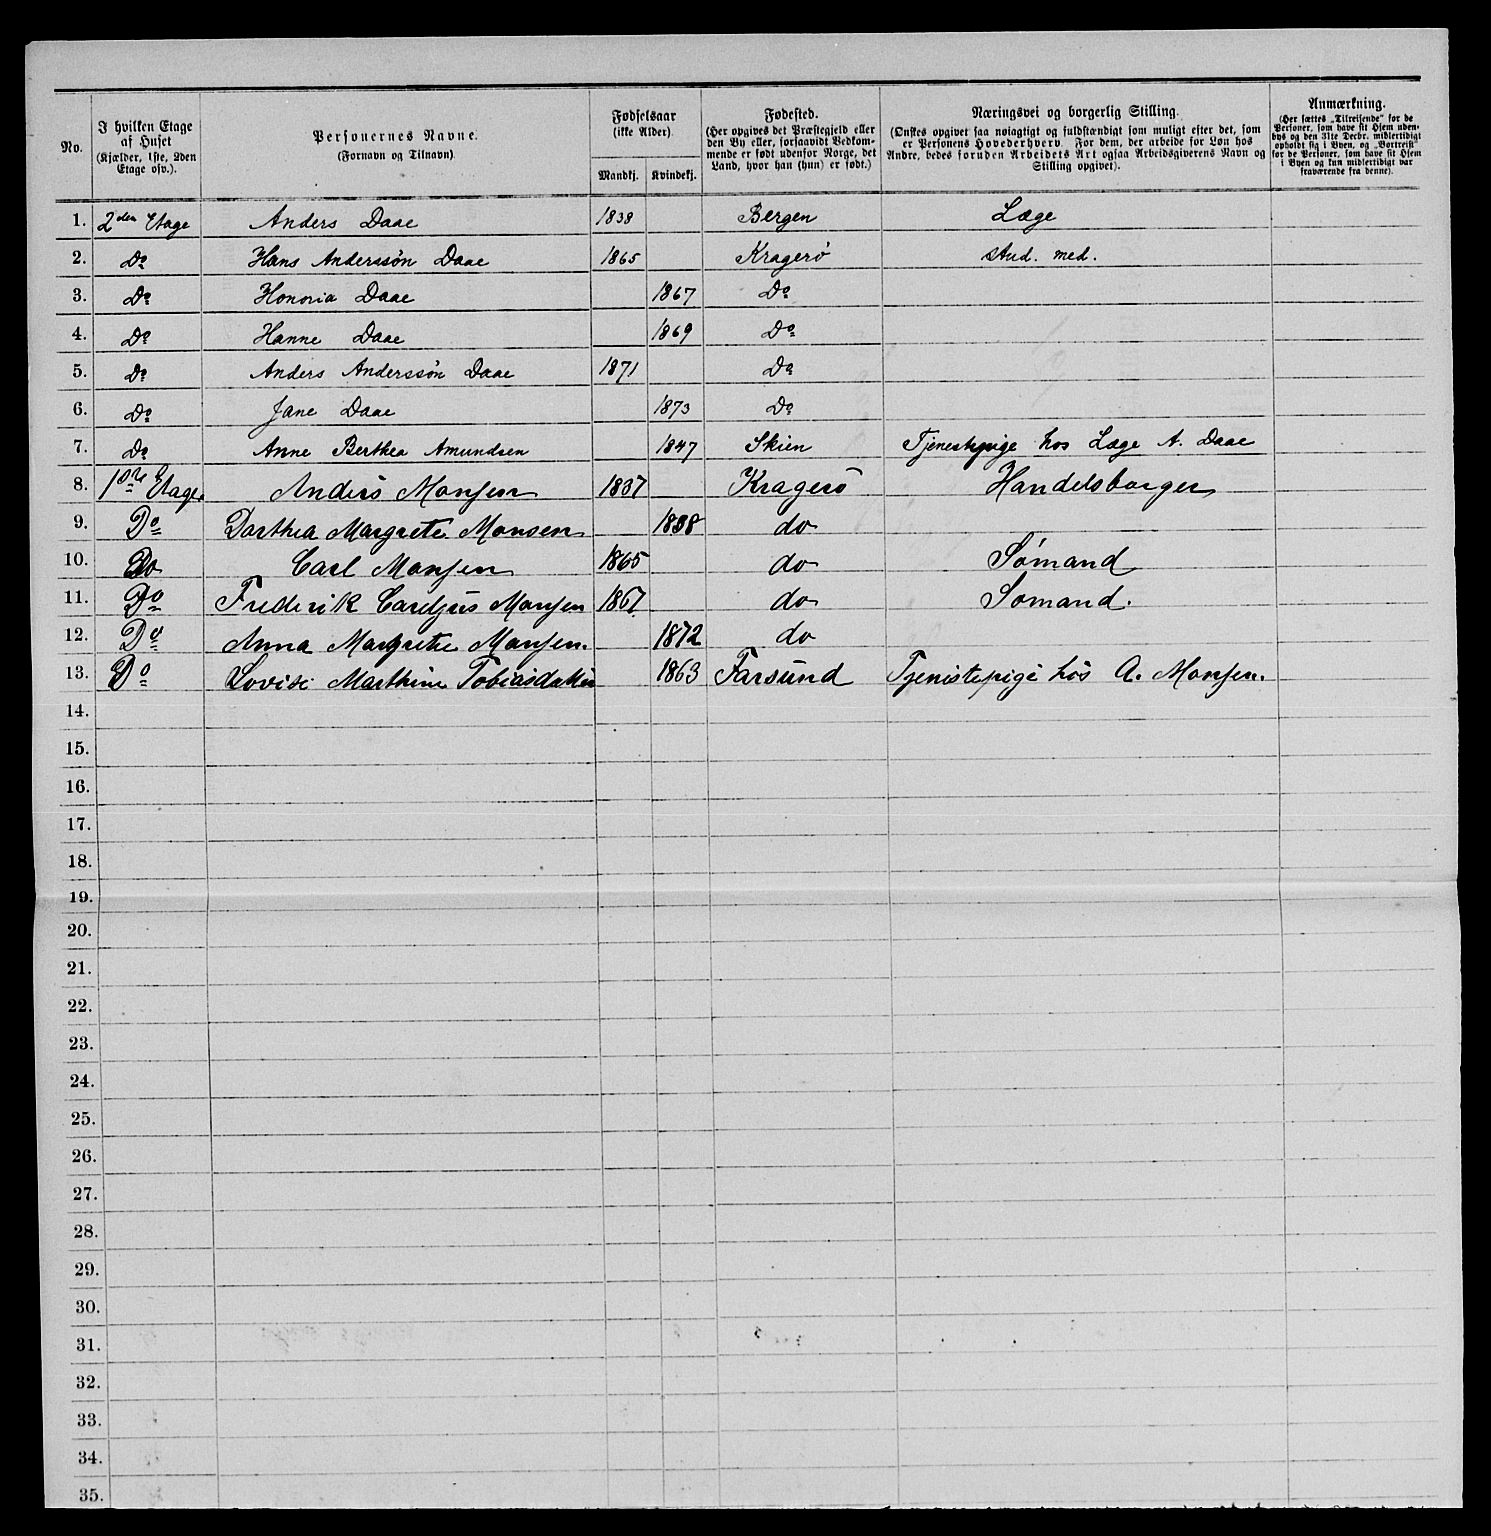 No. | I hvilken Etage af Huset (Kjælder, 1ste, 2den Etage osv.). | Personernes Navne. (Fornavn og Tilnavn) | Fødselsaar (ikke Alder). Mandkj. | Kvindekj. | Fødested. (Her opgives det Præstegjeld eller den By eller, forsaavidt Vedkommende er født udenfor Norge, det Land, hvor han (hun) er født.) | Næringsvei og borgerlig Stilling. (Ønskes opgivet saa nøiagtigt og fuldstændigt som muligt efter det, som er Personens Hovederhverv. For dem, der arbeide for Løn hos Andre, bedes foruden Arbeidets Art ogsaa Arbeidsgiverens Navn og Stilling opgivet). | Anmærkning. (Her sættes „Tilreisende" for de Personer, som have sit Hjem udenbys og den 31te Decbr. midlertidigt opholdt sig i Byen, og „Bortreist" for de Personer, som have sit Hjem i Byen og kun midlertidigt var fraværende fra denne).
1. 2den Etage Anders Daae 1838 Bergen Læge
2. Do Hans Anderssøn Daae 1865 Kragerø stud. med.
3. Do Honoria Daae 1867 Do
4. Do Hanne Daae 1869 Do
5. Do Anders Anderssøn Daae 1871 Do
6. Do Jane Daae 1873 Do
7. Do Anne Berthea Amundsen 1847 Skien Tjenestepige hos Læge A. Daae
8. 1ste Etage. Anders Monsen 1837 Kragerö Handelsborger
9. Do Dorthea Margrete Monsen 1838 do
10. Do Carl Monsen 1865 do Sømand
11. Do Frederik Careljus Monsen 1867 do Somand.
12. Do Anna Margrethe Monsen. 1872 do
13. Do Lovise Marthine Tobiasdatter 1863 Farsund Tjenistepige hos A. Monsen.
14.
15.
16.
17.
18.
19.
20.
21.
22.
23.
24.
25.
26.
27.
28.
29.
30.
31.
32.
33.
34.
35.